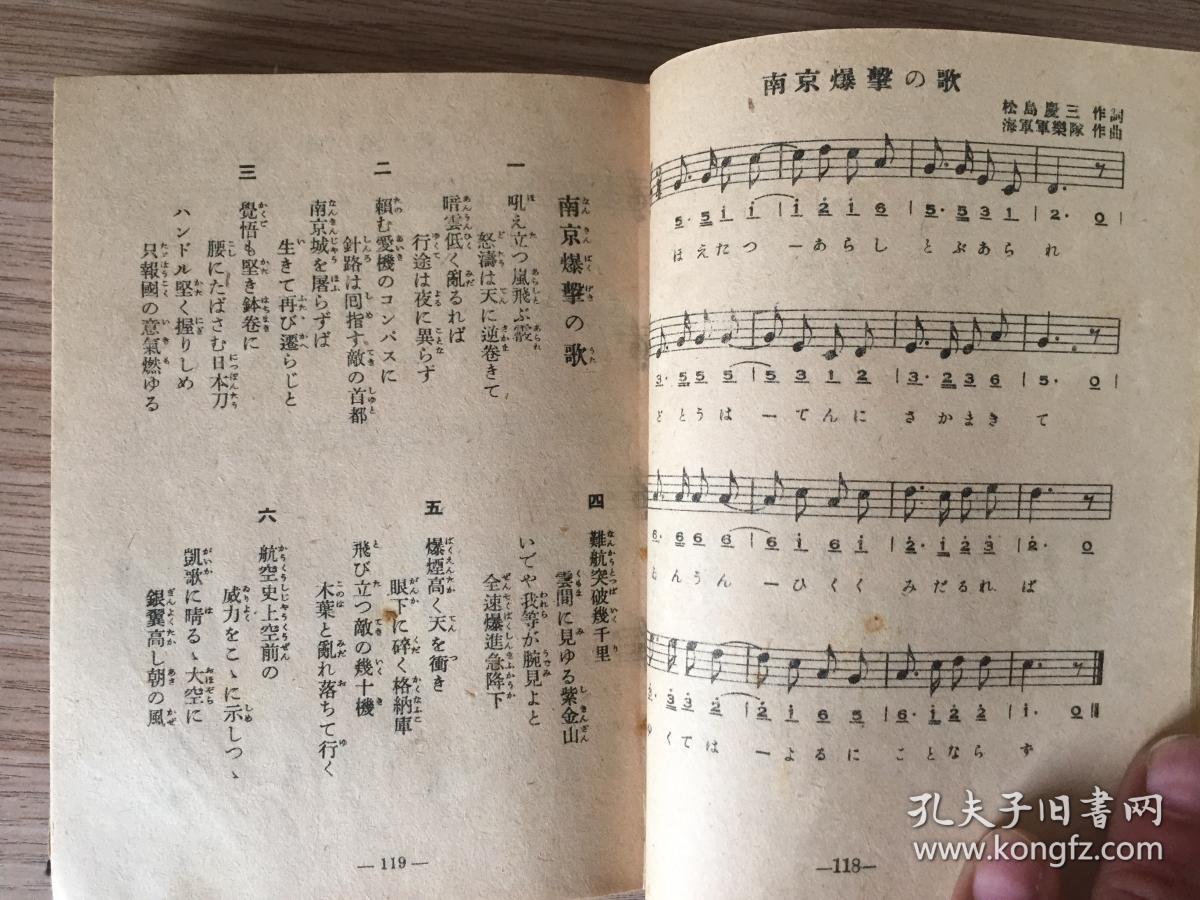 南京爆擊の歌
松島慶三 作詞
海軍軍樂隊 作曲
5· 5 i i | i 2 i 6 | 5· 5 3 1 | 2· 0
ほえたつ ーあらし とぶあられ
3· 5 5 5 | 5 3 1 2 | 3· 2 3 6 | 5· 0
どとうは ーてんに さかまきて
んうん ーひくく みだるれば
くては ーよるに ことならず
—118—
南京爆擊の歌
一
吼え立つ嵐飛ぶ霰
怒濤は天に逆卷きて
暗雲低く亂るれば
行途は夜に異らず
二
賴む愛機のコンパスに
針路は囘指す敵の首都
南京城を屠らずば
生きて再び還らじと
三
覺悟も堅き鉢卷に
腰にたばさむ日本刀
ハンドル堅く握りしめ
只報國の意氣燃ゆる
四
難航突破幾千里
雲間に見ゆる紫金山
いでや我等が腕見よと
全速爆進急降下
五
爆煙高く天を衝き
眼下に碎く格納庫
飛び立つ敵の幾十機
木葉と亂れ落ちて行く
六
航空史上空前の
威力をこゝに示しつゝ
凱歌に晴るゝ大空に
銀翼高し朝の風
—119—
孔夫子旧书网
www.kongfz.com